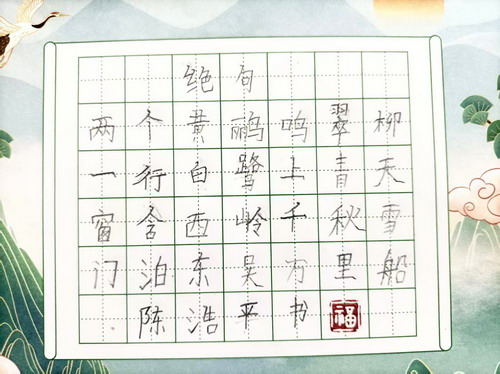 绝句
两个黄鹂鸣翠柳
一行白鹭上青天
窗含西岭千秋雪
门泊东吴万里船
陈浩平书
福